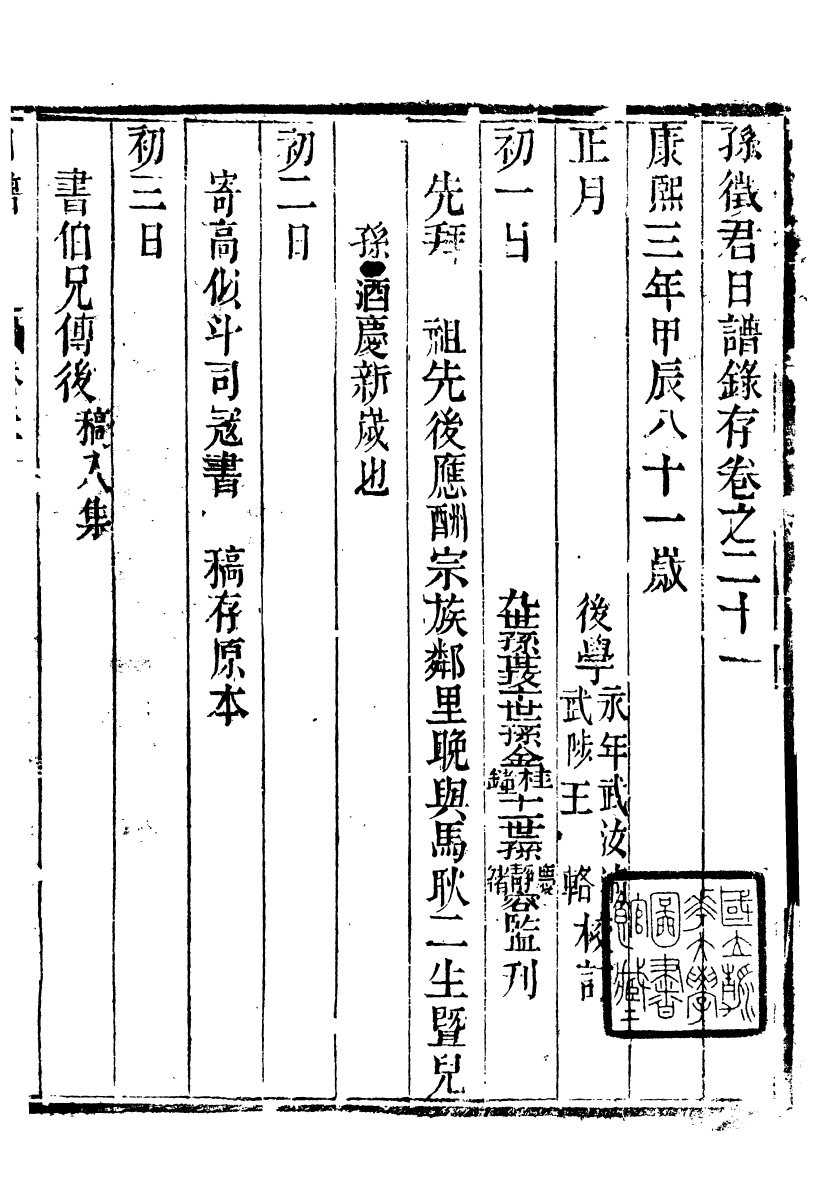 孫徵君日譜錄存卷之二十一
康熙三年甲辰八十一歲
正月
後學
永年武汝
武陟王輅
校訂
初一日
九世孫
世孫金
桂
鐘
十一世孫
慶
靜容
緒
監刊
先拜 祖先後應酬宗族鄰里晚與馬耿二生暨兒
孫●酒慶新歲也
初二日
寄高似斗司寇書 稿存原本
初三日
書伯兄傳後
稿入集
國立清華大學圖書館藏